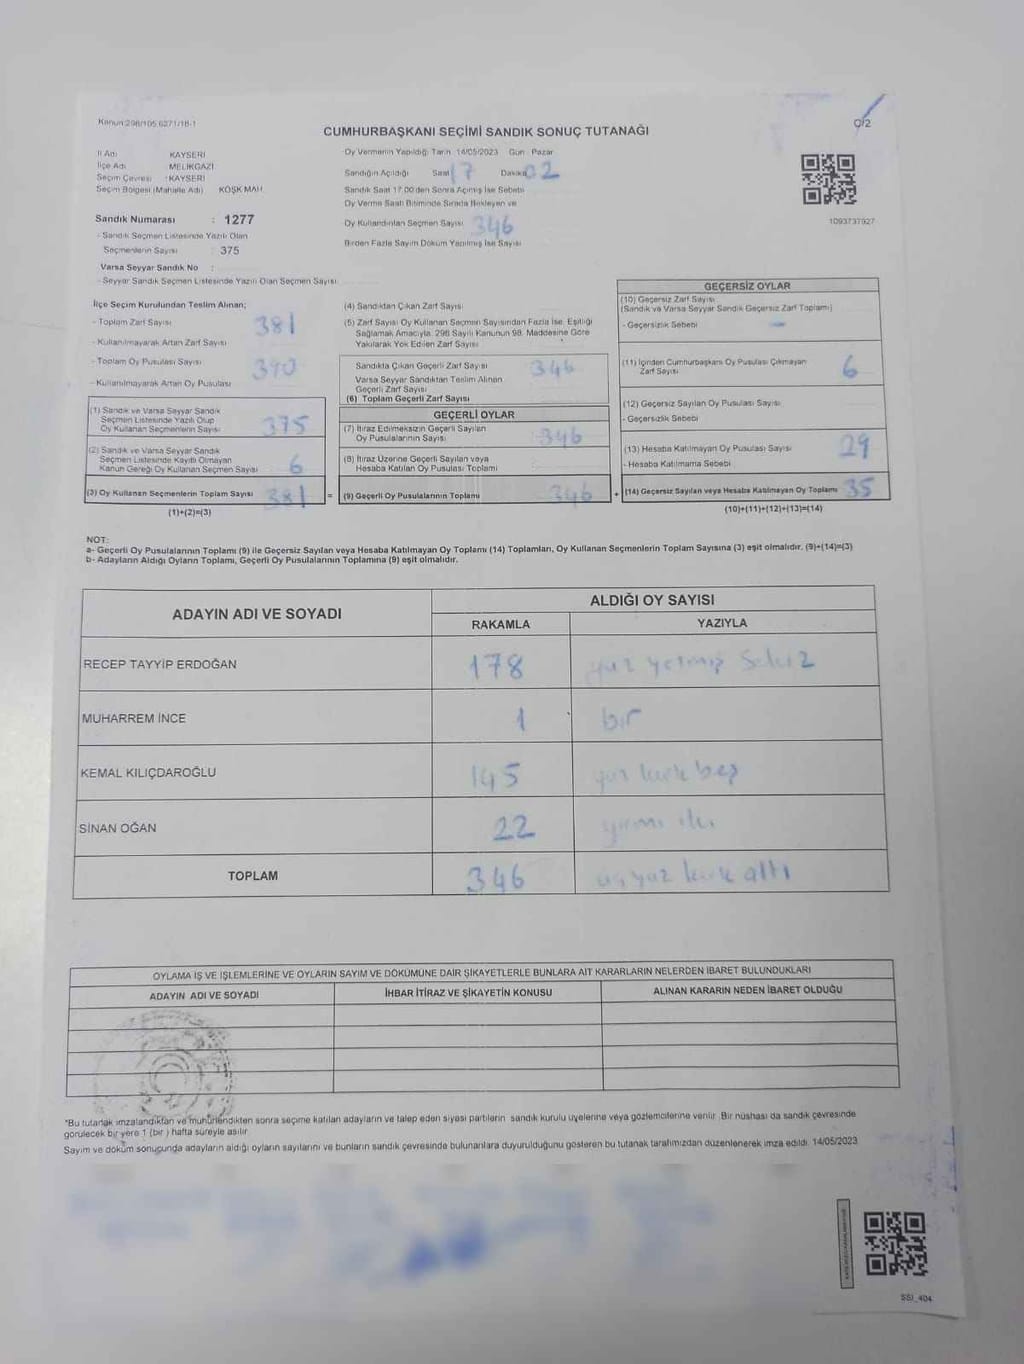 Kanun:298/105 6271/18-1
O/2
CUMHURBAŞKANI SEÇİMİ SANDIK SONUÇ TUTANAĞI
İl Adı KAYSERİ
İlçe Adı MELİKGAZİ
Seçim Çevresi : KAYSERİ
Seçim Bölgesi (Mahalle Adı) KÖŞK MAH.
Sandık Numarası : 1277
- Sandık Seçmen Listesinde Yazılı Olan
Seçmenlerin Sayısı : 375
Varsa Seyyar Sandık No :
- Seyyar Sandık Seçmen Listesinde Yazılı Olan Seçmen Sayısı
Oy Vermenin Yapıldığı Tarih 14/05/2023 Gün Pazar
Sandığın Açıldığı Saat 17 Dakika 02
Sandık Saat 17.00'den Sonra Açılmış İse Sebebi
Oy Verme Saati Bitiminde Sırada Bekleyen ve
Oy Kullandırılan Seçmen Sayısı 346
Birden Fazla Sayım Döküm Yapılmış İse Sayısı
1093737927
İlçe Seçim Kurulundan Teslim Alınan;
- Toplam Zarf Sayısı 381
- Kullanılmayarak Artan Zarf Sayısı
- Toplam Oy Pusulası Sayısı 390
- Kullanılmayarak Artan Oy Pusulası
(1) Sandık ve Varsa Seyyar Sandık
Seçmen Listesinde Yazılı Olup
Oy Kullanan Seçmenlerin Sayısı 375
(2) Sandık ve Varsa Seyyar Sandık
Seçmen Listesinde Kayıtlı Olmayan
Kanun Gereği Oy Kullanan Seçmen Sayısı 6
(3) Oy Kullanan Seçmenlerin Toplam Sayısı 381 =
(1)+(2)=(3)
(4) Sandıktan Çıkan Zarf Sayısı
(5) Zarf Sayısı Oy Kullanan Seçmen Sayısından Fazla İse, Eşitliği
Sağlamak Amacıyla, 298 Sayılı Kanunun 98. Maddesine Göre
Yakılarak Yok Edilen Zarf Sayısı
Sandıkta Çıkan Geçerli Zarf Sayısı 346
Varsa Seyyar Sandıktan Teslim Alınan
Geçerli Zarf Sayısı
(6) Toplam Geçerli Zarf Sayısı
GEÇERLİ OYLAR
(7) İtiraz Edilmeksizin Geçerli Sayılan
Oy Pusulalarının Sayısı 346
(8) İtiraz Üzerine Geçerli Sayılan veya
Hesaba Katılan Oy Pusulası Toplamı
(9) Geçerli Oy Pusulalarının Toplamı 346 +
GEÇERSİZ OYLAR
(10) Geçersiz Zarf Sayısı
(Sandık ve Varsa Seyyar Sandık Geçersiz Zarf Toplamı)
- Geçersizlik Sebebi -
(11) İçinden Cumhurbaşkanı Oy Pusulası Çıkmayan
Zarf Sayısı 6
(12) Geçersiz Sayılan Oy Pusulası Sayısı
- Geçersizlik Sebebi
(13) Hesaba Katılmayan Oy Pusulası Sayısı 29
- Hesaba Katılmama Sebebi
(14) Geçersiz Sayılan veya Hesaba Katılmayan Oy Toplamı 35
(10)+(11)+(12)+(13)=(14)
NOT:
a- Geçerli Oy Pusulalarının Toplamı (9) ile Geçersiz Sayılan veya Hesaba Katılmayan Oy Toplamı (14) Toplamları, Oy Kullanan Seçmenlerin Toplam Sayısına (3) eşit olmalıdır. (9)+(14)=(3)
b- Adayların Aldığı Oyların Toplamı, Geçerli Oy Pusulalarının Toplamına (9) eşit olmalıdır.
ADAYIN ADI VE SOYADI
ALDIĞI OY SAYISI
RAKAMLA YAZIYLA
RECEP TAYYİP ERDOĞAN 178 yüz yetmiş sekiz
MUHARREM İNCE 1 bir
KEMAL KILIÇDAROĞLU 145 yüz kırk beş
SİNAN OĞAN 22 yirmi iki
TOPLAM 346 üç yüz kırk altı
OYLAMA İŞ VE İŞLEMLERİNE VE OYLARIN SAYIM VE DÖKÜMÜNE DAİR ŞİKAYETLERLE BUNLARA AİT KARARLARIN NELERDEN İBARET BULUNDUKLARI
ADAYIN ADI VE SOYADI İHBAR İTİRAZ VE ŞİKAYETİN KONUSU ALINAN KARARIN NEDEN İBARET OLDUĞU
*Bu tutanak imzalandıktan ve mühürlendikten sonra seçime katılan adayların ve talep eden siyasi partilerin sandık kurulu üyelerine veya gözlemcilerine verilir. Bir nüshası da sandık çevresinde
görülecek bir yere 1 (bir ) hafta süreyle asılır.
Sayım ve döküm sonuçunda adayların aldığı oyların sayılarını ve bunların sandık çevresinde bulunanlara duyurulduğunu gösteren bu tutanak tarafımızdan düzenlenerek imza edildi. 14/05/2023
SSI_404